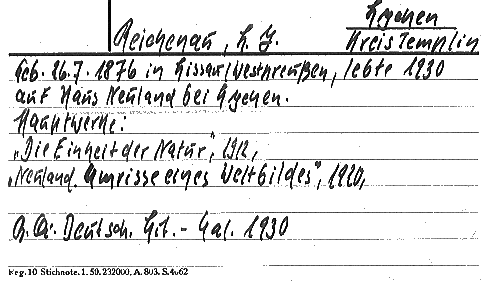 Lychen
Reichenau, L. J. Kreis Templin
Geb. 26.7.1876 in Lissau/Westpreußen, lebte 1930
auf Haus Neuland bei Lychen.
Hauptwerke:
„Die Einheit der Natur", 1912,
„Neuland. Umrisse eines Weltbildes", 1920,
Deutsch. Lit. - Kal. 1930
Reg. 10 Stichnote. 1. 50. 232000. A. 803. S. 4062